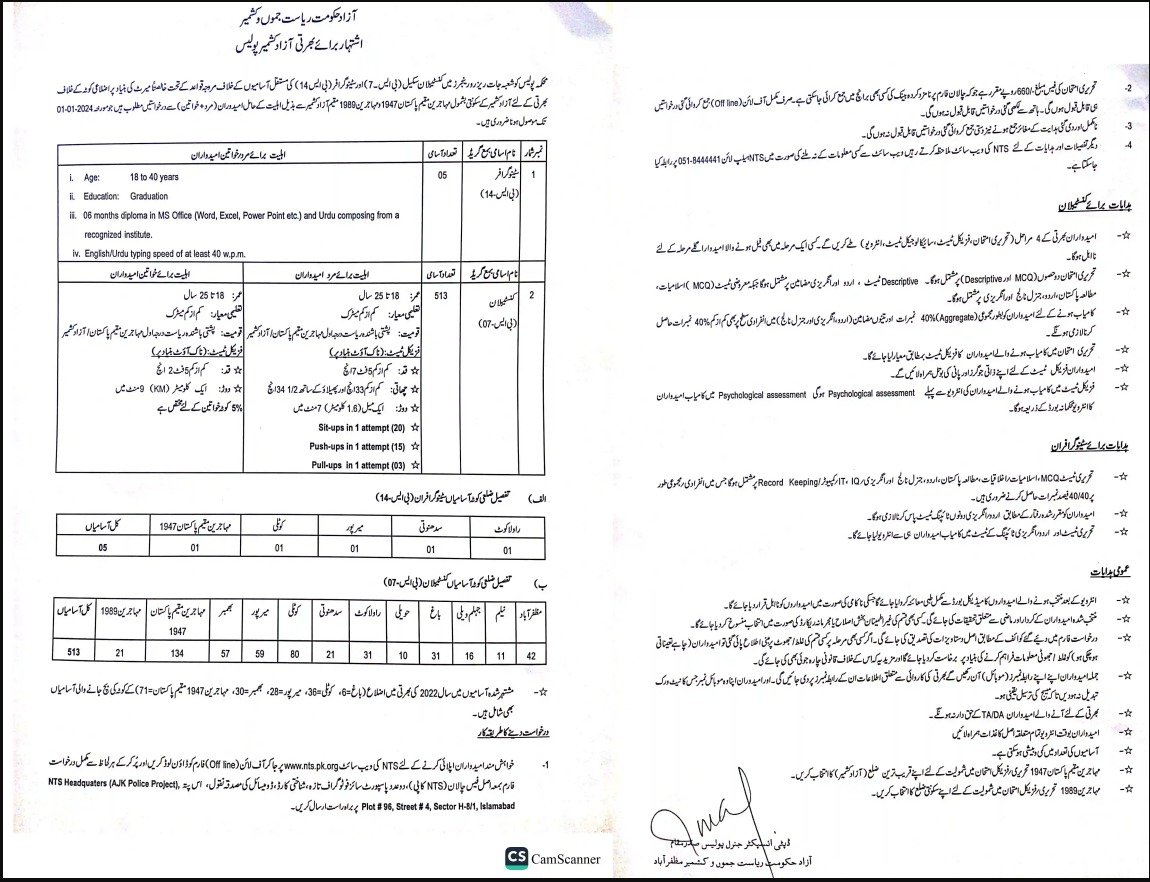 آزاد حکومت ریاست جموں و کشمیر
اشتہار برائے بھرتی آزاد کشمیر پولیس
محکمہ پولیس کو شعبہ جات ریزرو رینجرز میں کنسٹیبلان سکیل (بی ایس۔7) اور سٹینوگرافر (بی ایس 14) کی مستقل آسامیوں کے خلاف مروجہ قواعد کے تحت خالصتاً میرٹ کی بنیاد پر اضلاعی کوٹہ کے خلاف
بھرتی کے لئے آزاد کشمیر کے سکونتی بشمول مہاجرین مقیم پاکستان 1947 و مہاجرین 1989 مقیم آزاد کشمیر سے بذیل اہلیت کے حامل امیدواران (مرد + خواتین) سے درخواستیں مطلوب ہیں جو مورخہ 2024-01-01
تک موصول ہونا ضروری ہیں۔
نمبر شمار نام اسامی بمع گریڈ تعداد آسامی اہلیت برائے مرد و خواتین امیدواران
1 سٹینوگرافر (بی ایس-14) 05
i. Age: 18 to 40 years
ii. Education: Graduation
iii. 06 months diploma in MS Office (Word, Excel, Power Point etc.) and Urdu composing from a
recognized institute.
iv. English/Urdu typing speed of at least 40 w.p.m.
نام اسامی بمع گریڈ تعداد آسامی اہلیت برائے مرد امیدواران اہلیت برائے خواتین امیدواران
2 کنسٹیبلان (بی ایس-07) 513
عمر: 18 تا 25 سال
تعلیمی معیار: کم از کم میٹرک
قومیت: پشتنی باشندہ ریاست درجہ اول مہاجرین مقیم پاکستان/آزاد کشمیر
فزیکل ٹیسٹ: (ناک آؤٹ بنیاد پر)
☆ قد: کم از کم 5 فٹ 7 انچ
☆ چھاتی: کم از کم 33 انچ اور پھیلاؤ کے ساتھ 34 1/2 انچ
☆ دوڑ: ایک میل (1.6 کلومیٹر) 7 منٹ میں
☆ Sit-ups in 1 attempt (20)
☆ Push-ups in 1 attempt (15)
☆ Pull-ups in 1 attempt (03)
عمر: 18 تا 25 سال
تعلیمی معیار: کم از کم میٹرک
قومیت: پشتنی باشندہ ریاست درجہ اول مہاجرین مقیم پاکستان/آزاد کشمیر
فزیکل ٹیسٹ: (ناک آؤٹ بنیاد پر)
☆ قد: کم از کم 5 فٹ 2 انچ
☆ دوڑ: ایک کلومیٹر (KM) 9 منٹ میں
5% کوٹہ خواتین کے لئے مختص ہے
الف) تفصیل ضلعی کوٹہ آسامیاں سٹینوگرافران (بی ایس-14)
راولاکوٹ سدھنوتی میرپور کوٹلی مہاجرین مقیم پاکستان 1947 کل آسامیاں
01 01 01 01 01 05
ب) تفصیل ضلعی کوٹہ آسامیاں کنسٹیبلان (بی ایس-07)
مظفر آباد نیلم جہلم ویلی باغ حویلی راولاکوٹ سدھنوتی کوٹلی میرپور بھمبر مہاجرین مقیم پاکستان 1947 مہاجرین 1989 کل آسامیاں
42 11 16 31 10 31 21 80 59 57 134 21 513
☆- مشتہر شدہ آسامیوں میں سال 2022 کی بھرتی میں اضلاع (باغ=6، کوٹلی=36، میرپور=28، بھمبر=30، مہاجرین 1947 مقیم پاکستان=71) کے کوٹہ کی بچ جانے والی آسامیاں
بھی شامل ہیں۔
درخواست دینے کا طریقہ کار
1- خواہش مند امیدواران اپلائی کرنے کے لئے NTS کی ویب سائٹ www.nts.pk.org پر جا کر آف لائن (Off line) فارم کو ڈاؤن لوڈ کریں اور پُر کر کے ہر لحاظ سے مکمل درخواست
فارم بمعہ اصل فیس چالان (NTS کاپی)، دو عدد پاسپورٹ سائز فوٹو گراف تازہ، شناختی کارڈ، ڈومیسائل کی مصدقہ نقول، اس پتہ NTS Headquaters (AJK Police Project),
Plot # 96, Street # 4, Sector H-8/1, Islamabad پر براہ راست ارسال کریں۔
CS CamScanner
2- تحریری امتحان کی فیس مبلغ -/660 روپے مقرر ہے جو کہ چالان فارم پر نامزد کردہ بینک کی کسی بھی برانچ میں جمع کرائی جا سکتی ہے۔ صرف مکمل آف لائن (Off line) جمع کروائی گئی درخواستیں
ہی قابل قبول ہوں گی۔ ہاتھ سے لکھی گئی درخواستیں قابل قبول نہ ہوں گی۔
3- نامکمل اور دی گئی ہدایت کے مغائر جمع ہونے نیز دستی جمع کروائی گئی درخواستیں قابل قبول نہ ہوں گی۔
4- دیگر تفصیلات اور ہدایات کے لئے NTS کی ویب سائٹ ملاحظہ کرتے رہیں ویب سائٹ سے کسی معلومات کے نہ ملنے کی صورت میں NTS ہیلپ لائن 051-8444441 پر رابطہ کیا
جا سکتا ہے۔
ہدایات برائے کنسٹیبلان
☆- امیدواران بھرتی کے 4 مراحل (تحریری امتحان، فزیکل ٹیسٹ، سائیکالوجیکل ٹیسٹ، انٹرویو) طے کریں گے۔ کسی ایک مرحلہ میں بھی فیل ہونے والا امیدوار اگلے مرحلہ کے لئے
نااہل ہوگا۔
☆- تحریری امتحان دو حصوں (MCQ اور Descriptive) پر مشتمل ہوگا۔ Descriptive ٹیسٹ، اردو اور انگریزی مضامین پر مشتمل ہوگا جبکہ معروضی ٹیسٹ (MCQ) اسلامیات،
مطالعہ پاکستان، اردو، جنرل نالج اور انگریزی پر مشتمل ہوگا۔
☆- کامیاب ہونے کے لئے امیدواران کو بطور مجموعی (Aggregate) 40% نمبرات اور تینوں مضامین (اردو، انگریزی اور جنرل نالج) میں انفرادی سطح پر بھی کم از کم 40% نمبرات حاصل
کرنا لازمی ہونگے۔
☆- تحریری امتحان میں کامیاب ہونے والے امیدواران کا فزیکل ٹیسٹ بمطابق معیار لیا جائے گا۔
☆- امیدواران فزیکل ٹیسٹ کے لئے اپنے ذاتی جوگرز اور پانی کی بوتل ہمراہ لائیں گے۔
☆- فزیکل ٹیسٹ میں کامیاب ہونے والے امیدواران کی انٹرویو سے پہلے Psychological assessment ہوگی Psychological assessment میں کامیاب امیدواران
کا انٹرویو محکمانہ بورڈ کے ذریعہ ہوگا۔
ہدایات برائے سٹینوگرافران
☆- تحریری ٹیسٹ MCQ، اسلامیات/اخلاقیات، مطالعہ پاکستان، اردو، جنرل نالج اور انگریزی/IT، IQ/کمپیوٹر/Record Keeping پر مشتمل ہوگا جس میں انفرادی و مجموعی طور
پر 40/40 فیصد نمبرات حاصل کرنے ضروری ہیں۔
☆- امیدواران کو مقرر شدہ رفتار کے مطابق اردو و انگریزی دونوں ٹائپنگ ٹیسٹ پاس کرنا لازمی ہوگا۔
☆- تحریری ٹیسٹ اور اردو و انگریزی ٹائپنگ کے ٹیسٹ میں کامیاب امیدواران ہی سے انٹرویو لیا جائے گا۔
عمومی ہدایات
☆- انٹرویو کے بعد منتخب ہونے والے امیدواران کا میڈیکل بورڈ سے مکمل طبی معائنہ کروایا جائے گا جسکی ناکامی کی صورت میں امیدواران کو نااہل قرار دیا جائے گا۔
☆- منتخب شدہ امیدواران کے کردار اور ماضی سے متعلق تحقیقات کی جائے گی۔ کسی بھی قسم کی غیر اطمینان بخش اصلاح یا مجرمانہ ریکارڈ کی صورت میں انتخاب منسوخ کر دیا جائے گا۔
☆- درخواست فارم میں دیئے گئے کوائف کے مطابق اصل دستاویزات کی تصدیق کی جائے گی۔ اگر کسی بھی مرحلہ پر کسی قسم کی غلط/جھوٹ پر مبنی اطلاع پائی گئی تو امیدواران (چاہے تعیناتی
ہو چکی ہو) کو غلط/جھوٹی معلومات فراہم کرنے کی بنیاد پر برخاست کر دیا جائے گا اور مزید یہ کہ اس کے خلاف قانونی چارہ جوئی بھی کی جائے گی۔
☆- جملہ امیدواران اپنے اپنے رابطہ نمبرز (موبائل) آن رکھیں گے بھرتی کی کاروائی سے متعلق اطلاعات ان کے رابطہ نمبرز پر دی جائیں گی۔ اور امیدواران اپنا وہ موبائل نمبر جس کا نیٹ ورک
تبدیل نہ ہو دیں تاکہ میسج کی ترسیل یقینی ہو۔
☆- بھرتی کے لئے آنے والے امیدواران TA/DA کے حق دار نہ ہونگے۔
☆- امیدواران بوقت انٹرویو تمام متعلقہ اصل کاغذات ہمراہ لائیں
☆- آسامیوں کی تعداد میں کمی و بیشی ہو سکتی ہے۔
☆- مہاجرین مقیم پاکستان 1947 تحریری/فزیکل امتحان میں شمولیت کے لئے اپنے قریب ترین ضلع (آزاد کشمیر) کا انتخاب کریں۔
☆- مہاجرین 1989 تحریری/فزیکل امتحان میں شمولیت کے لئے اپنے سکونتی ضلع کا انتخاب کریں۔
ڈپٹی انسپکٹر جنرل پولیس صدر مقام
آزاد حکومت ریاست جموں و کشمیر مظفر آباد